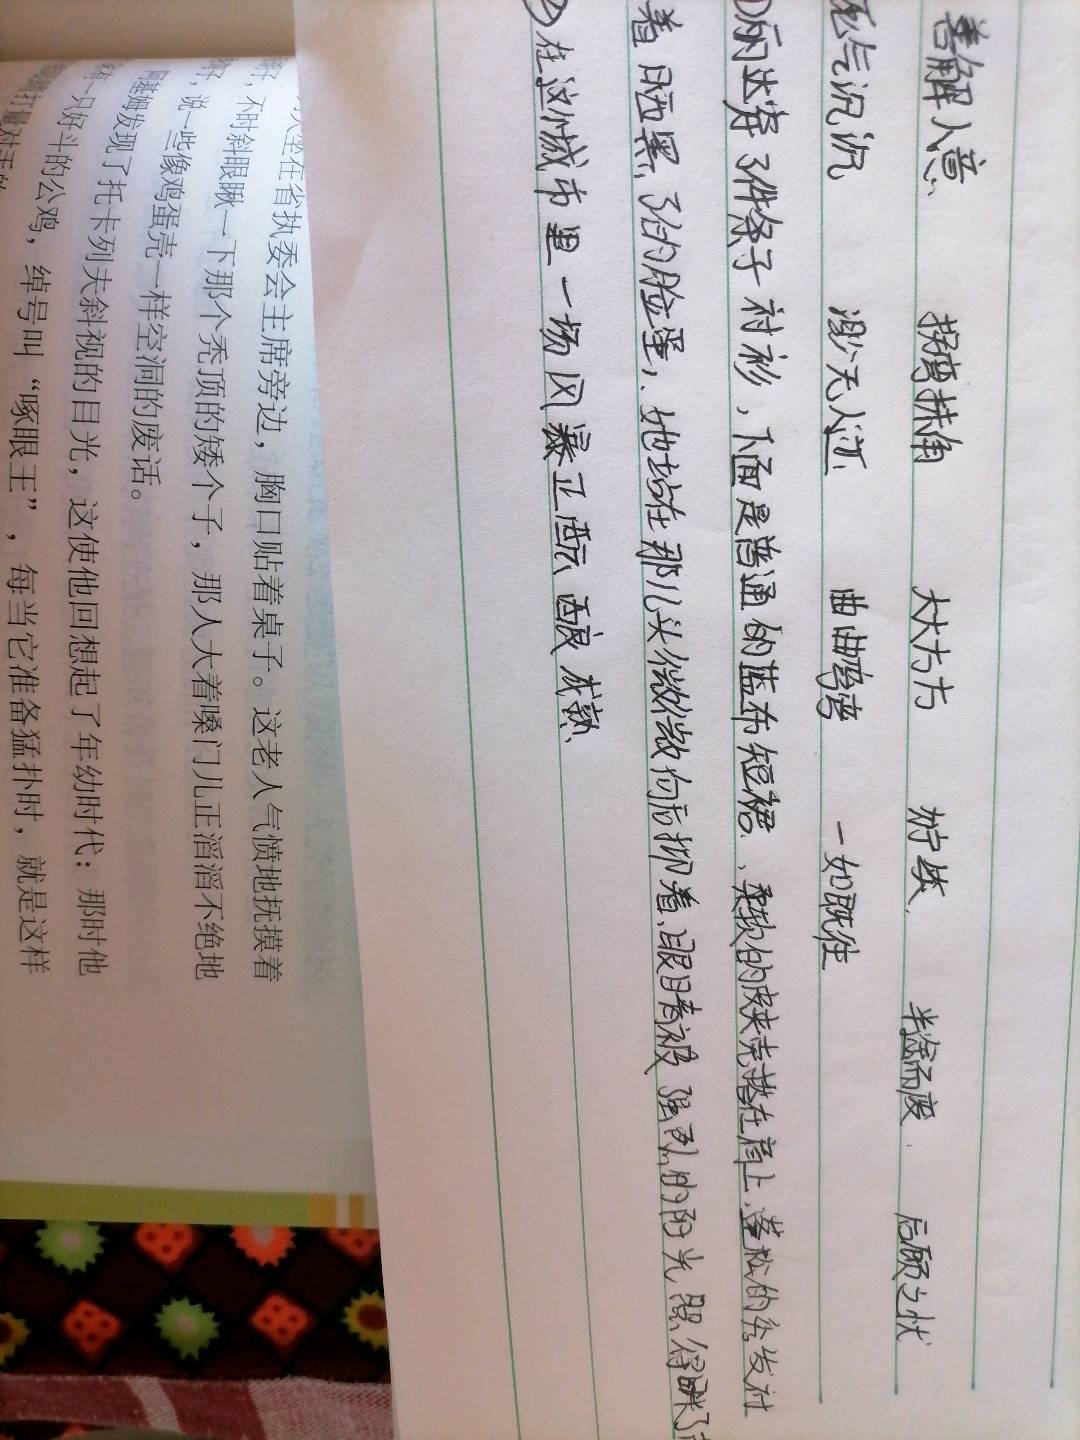 善解人意、 拐弯抹角 大大方方 拧紧、 半途而废、 后顾之忧
死气沉沉 渺无人迹 曲曲弯弯 一如既往
丽达穿了件条子衬衫，下面是普通的蓝布短裙、柔软的皮夹克搭在肩上、蓬松的秀发衬
着晒黑了的脸蛋，她站在那儿头微微向后仰着、眼睛被强烈的阳光照得眯了
②在这个城市里一场风暴正酝酿成熟
坐在省执委会主席旁边，胸口贴着桌子。这老人气愤地抚摸着
，不时斜眼瞅一下那个秃顶的矮个子，那人大着嗓门儿正滔滔不绝地
，说一些像鸡蛋壳一样空洞的废话。
阿基姆发现了托卡列夫斜视的目光，这使他回想起了年幼时代：那时他
有一只好斗的公鸡，绰号叫“啄眼王”，每当它准备猛扑时，就是这样
打量对手的